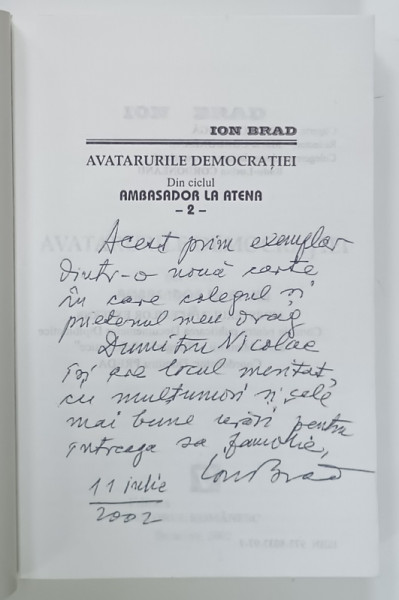 ION BRAD
AVATARURILE DEMOCRAȚIEI
Din ciclul
AMBASADOR LA ATENA
– 2 –
Acest prim exemplar
dintr-o nouă carte
în care colegul și
prietenul meu drag
Dumitru Nicolae
își are locul meritat,
cu mulțumiri și cele
mai bune urări pentru
întreaga sa familie,
Ion Brad
11 iulie
2002